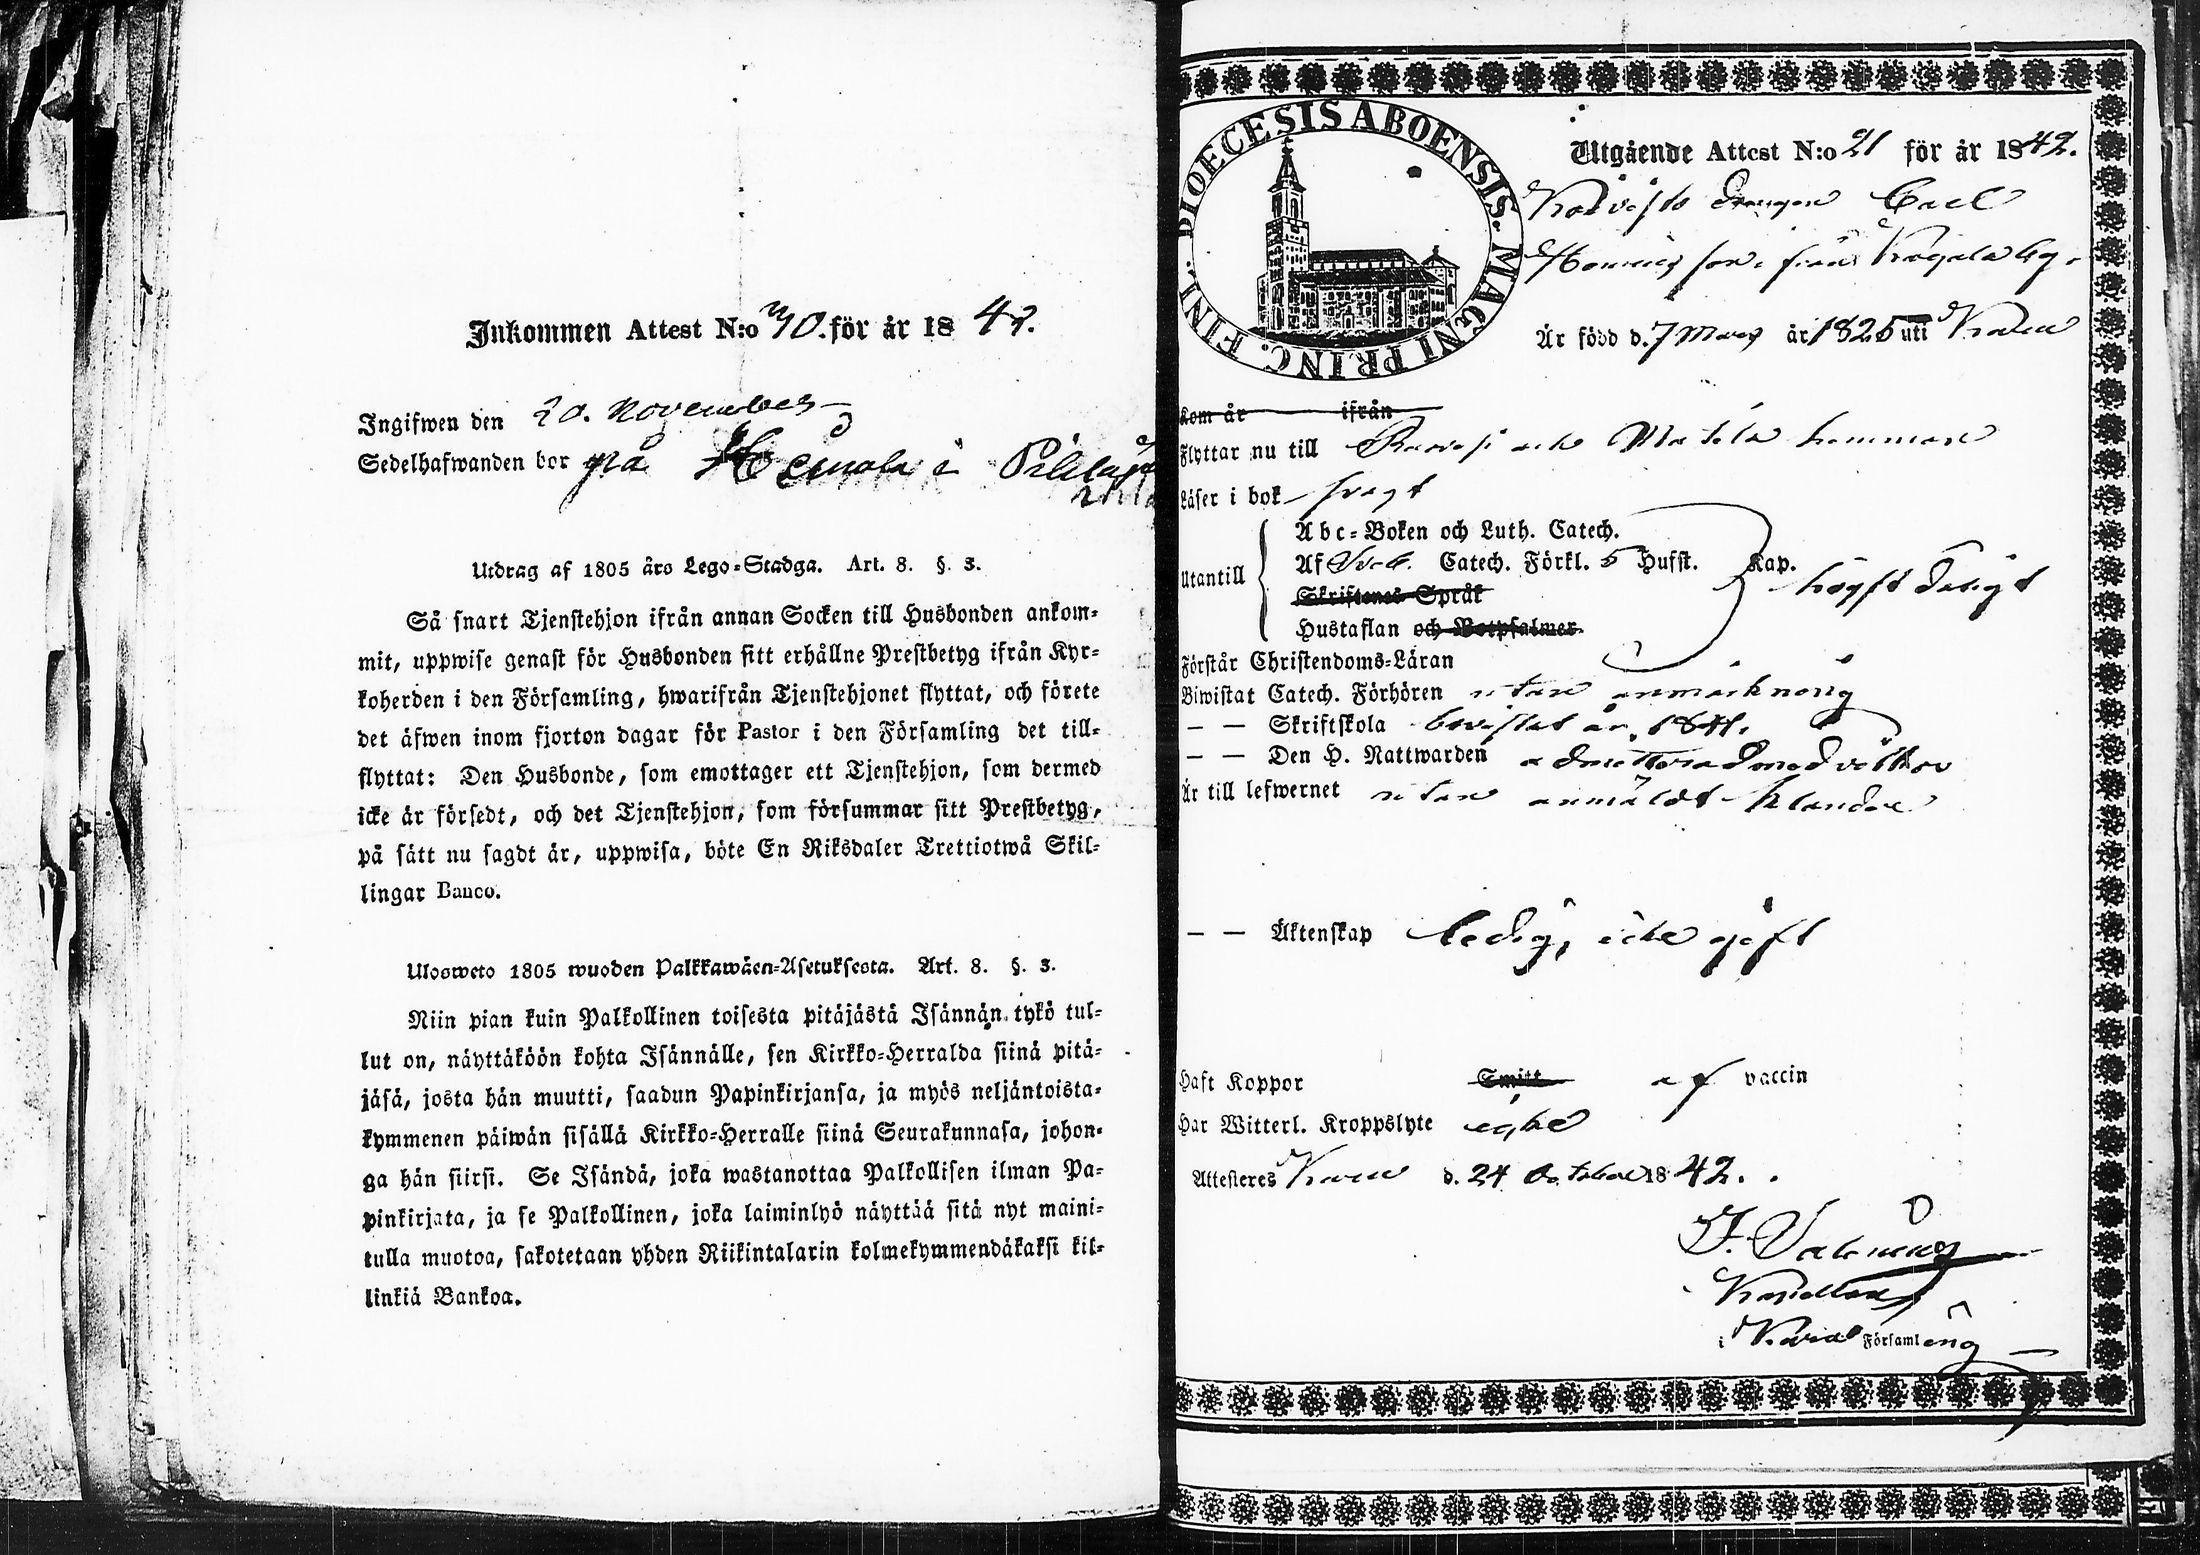 Inkommen Attest N:o 30. för år 1842.
Ingifwen den 20. November
Sedelhafwanden bor på Heinola i
Utdrag af 1805 års Lego-Stadga. Art. 8. §. 3.
Så snart Tjenstehjon ifrån annan Socken till Husbonden ankom-
mit, uppwise genast för Husbonden sitt erhållne Prestbetyg ifrån Kyr-
koherden i den Församling, hwarifrån Tjenstehjonet flyttat, och förete
det äfwen inom fjorton dagar för Pastor i den Församling det till-
flyttat: Den Husbonde, som emottager ett Tjenstehjon, som dermed
icke är försedt, och det Tjenstehjon, som försummar sitt Prestbetyg,
på sätt nu sagdt är, uppwisa, böte En Riksdaler Trettiotwå Skil-
lingar Banco.
Ulosweto 1805 wuoden Palkkawäen-Asetuksesta. Art. 8. §. 3.
Niin pian kuin Palkollinen toisesta pitäjästä Isännän tykö tul-
lut on, näyttäköön kohta Isännälle, sen Kirkko-Herralda siinä pitä-
jäsä, josta hän muutti, saadun Papinkirjansa, ja myös neljäntoista-
kymmenen päiwän sisällä Kirkko-Herralle siinä Seurakunnasa, johon-
ga hän siirsi. Se Isändä, joka wastanottaa Palkollisen ilman Pa-
pinkirjata, ja se Palkollinen, joka laiminlyö näyttää sitä nyt maini-
tulla muotoa, sakotetaan yhden Riikintalarin kolmekymmendäkaksi kil-
linkiä Bankoa.
DIOECESIS ABOENSIS. MAGNI PRINC. FINL.
Utgående Attest N:o 21 för år 1842.
Koivisto Drengen Carl
son, från by.
Är född d. 7 Mars år 1825 uti Karu
Kom år ifrån
Flyttar nu till Mattila hemman
Läser i bok svagt
Utantill
Abc-Boken och Luth. Catech.
Af Sveb. Catech. Förkl. 5 Hufst. Kap. högst dåligt
Skriftenes Språk
Hustaflan och Botpsalmer.
Förstår Christendoms-Läran
Biwistat Catech. Förhören utan anmärkning
— — Skriftskola bevistat år 1841.
— — Den H. Nattwarden
Är till lefwernet utan anmäldt klander
— — Äktenskap ledig, icke gift
Haft Koppor Smitt af vaccin
Har Witterl. Kroppslyte
Attesteres Karu d. 24 October 1842.
Kapellan
i Karu Församling